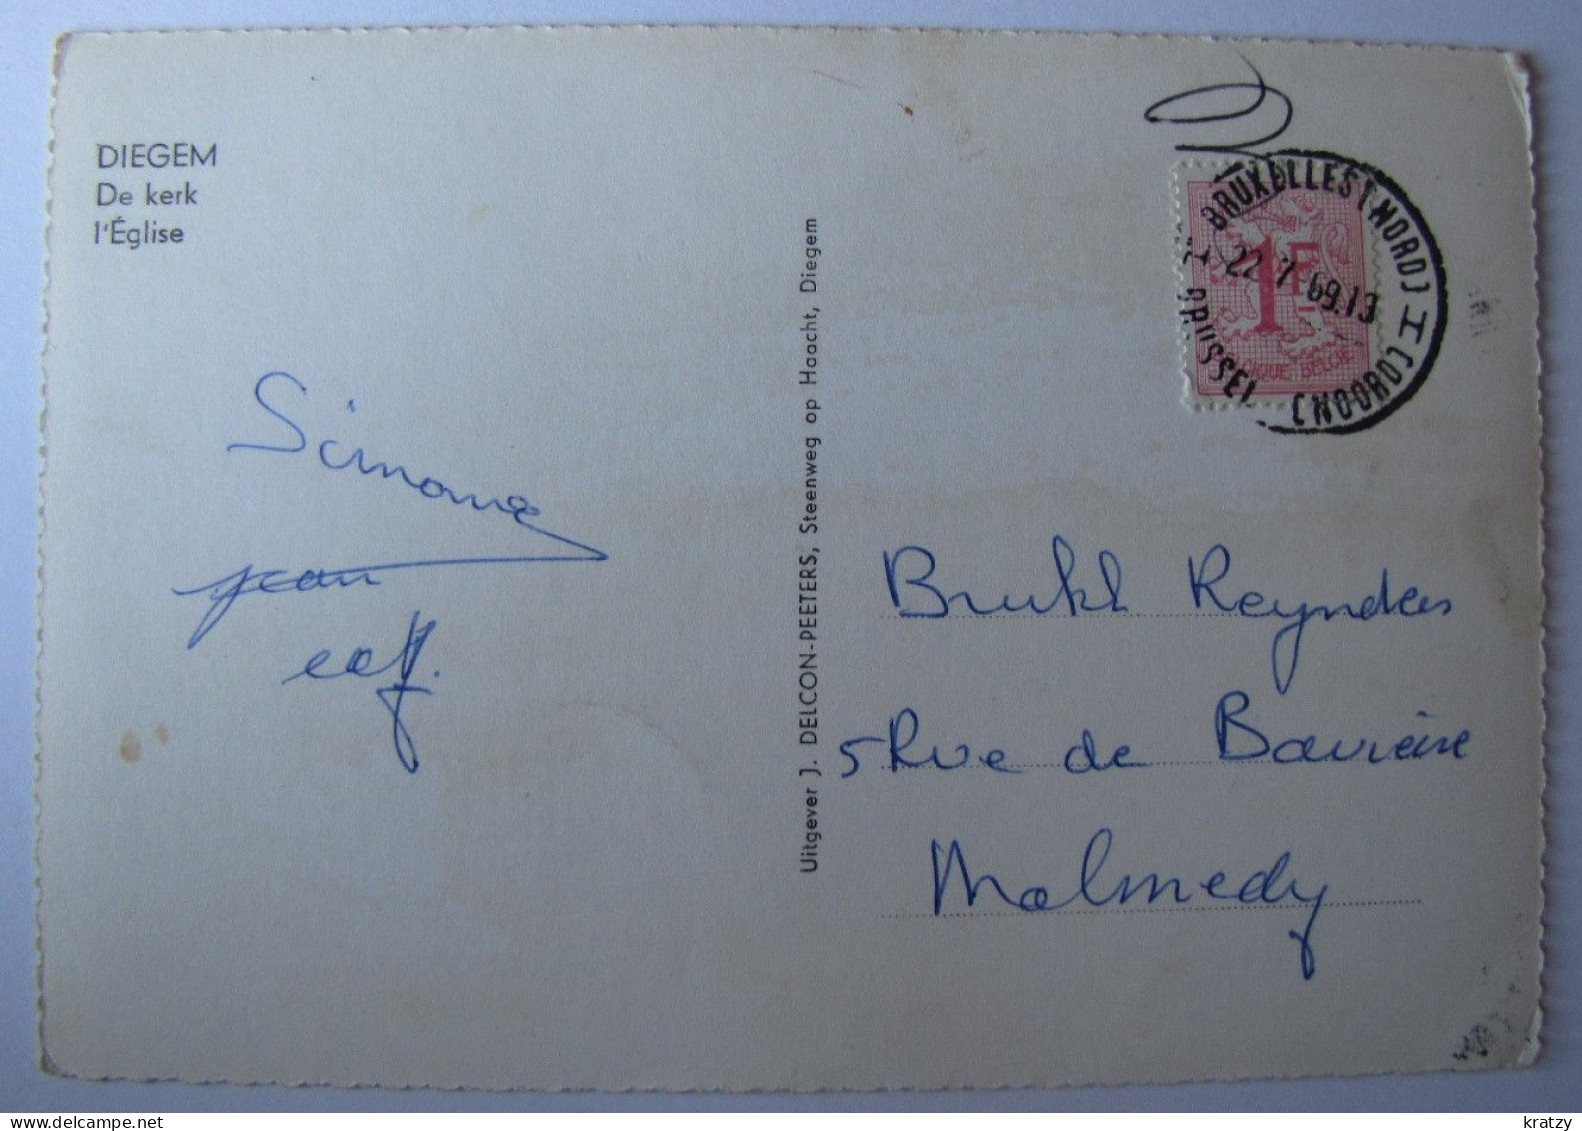 DIEGEM
De kerk
l'Église
Simone
jean
Uitgever J. DELCON-PEETERS, Steenweg op Haacht, Diegem
BRUXELLES (NORD) I (NOORD) BRUSSEL
22-7-69.13
1F
BELGIQUE·BELGIE
Reynders
5 Rue de Bavière
Malmedy
kratzy